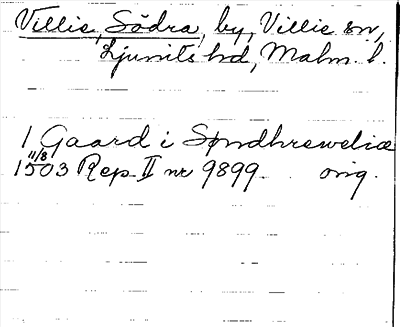 Villie, Södra, by, Villie sn,
Ljunits hd, Malm. l.
1 Gaard i Søndhreweliæ
11/8
1503 Rep. II nr 9899. orig.